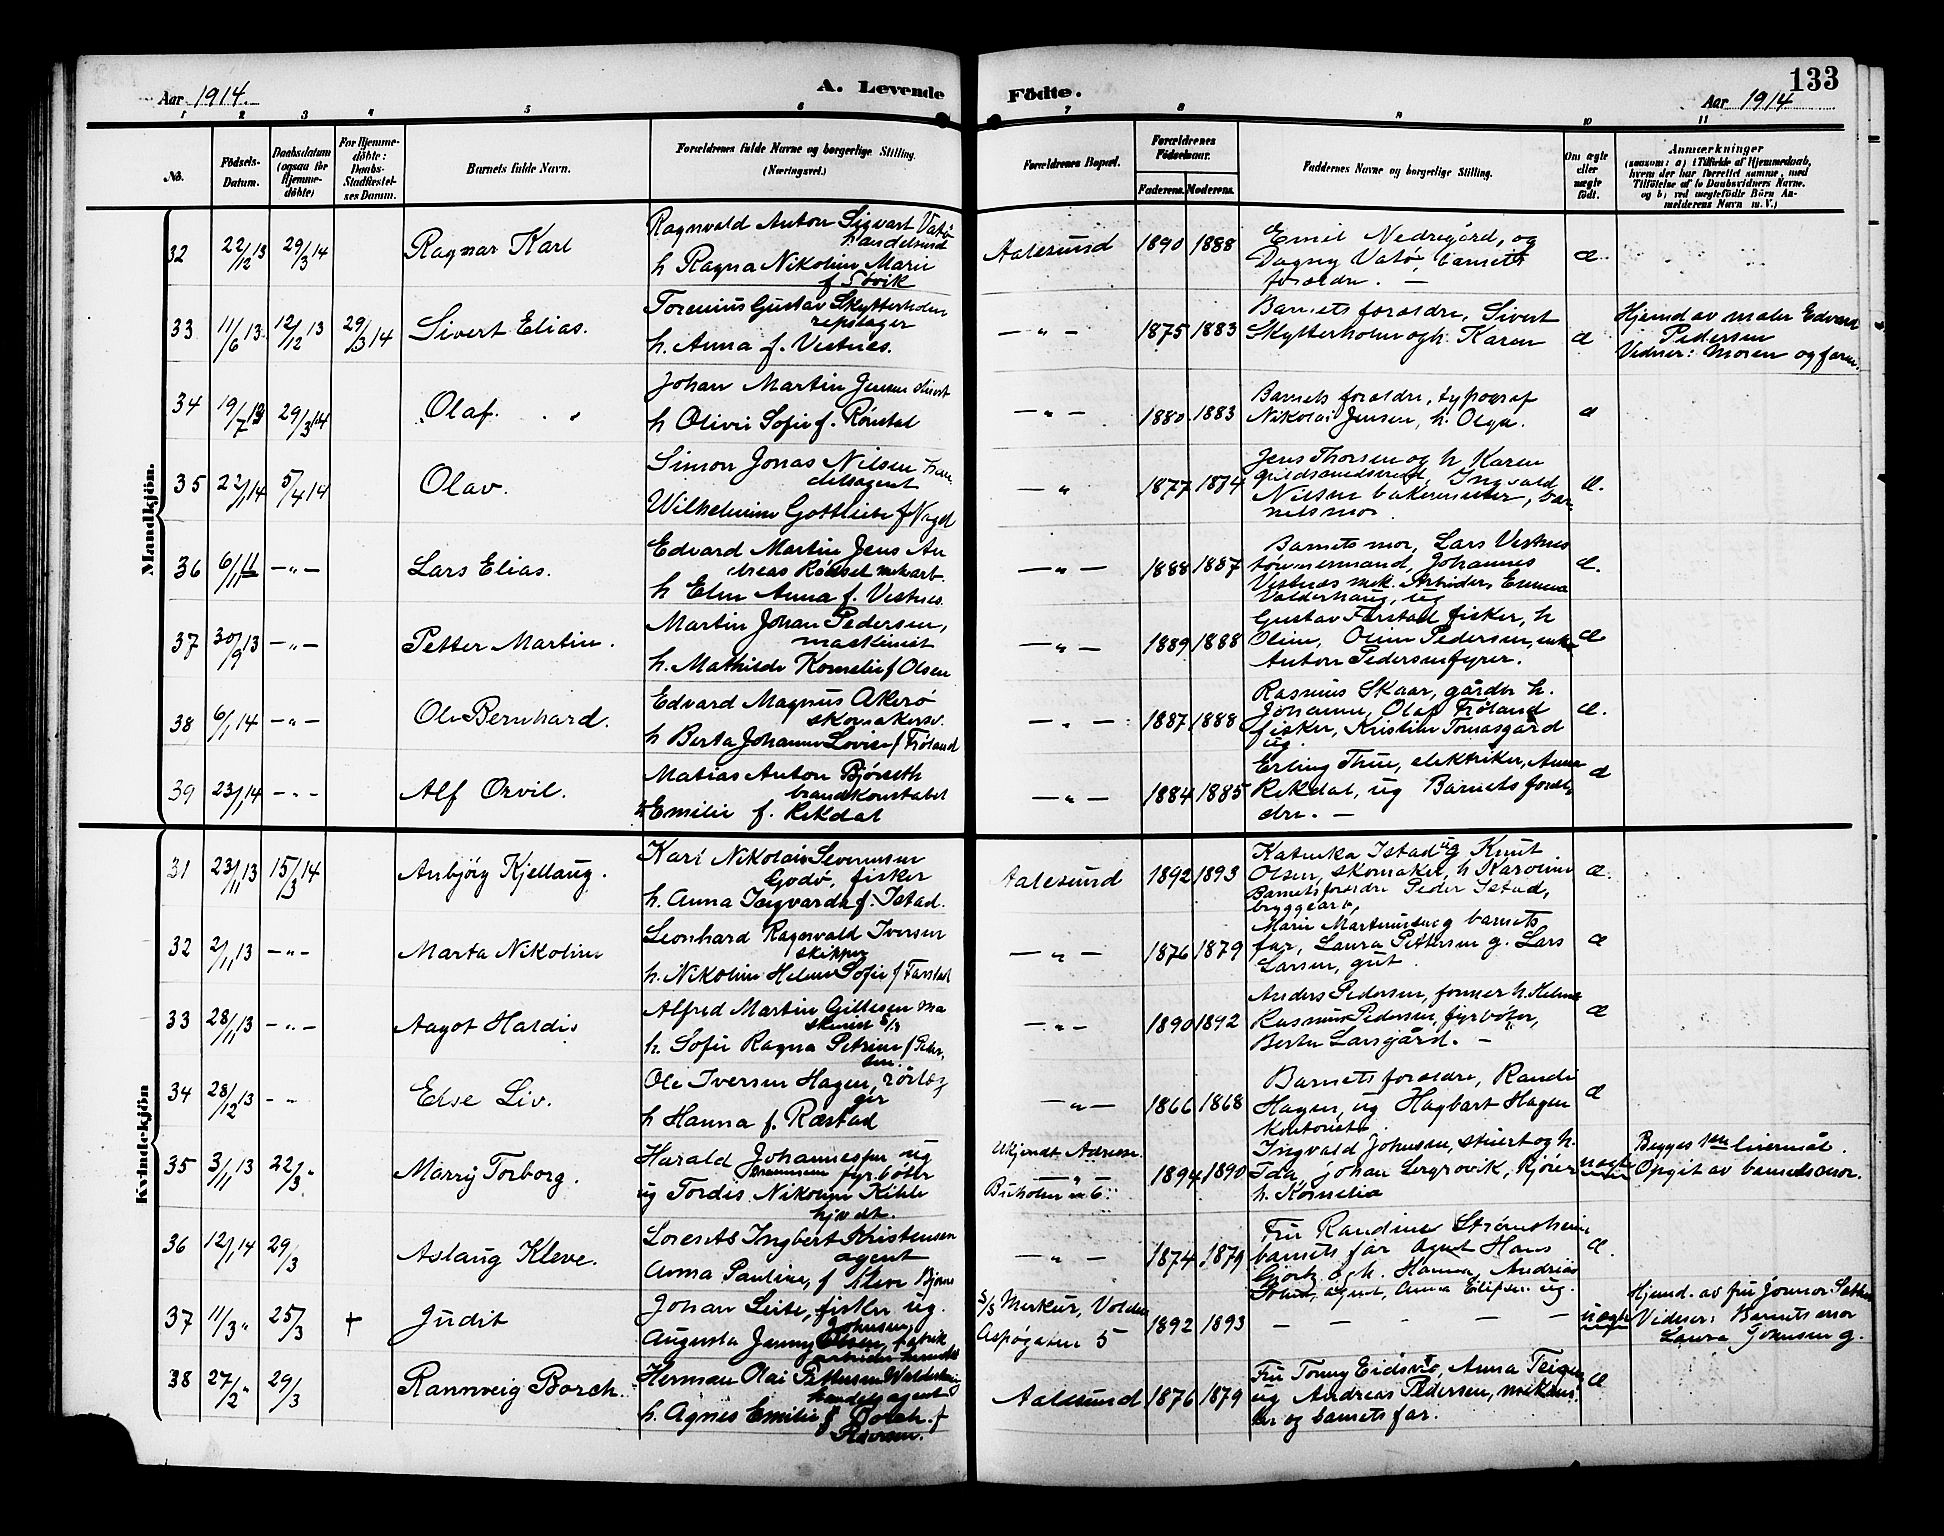 Aar 1914.
A. Levende
Fødte.
133
Aar 1914
1 2 3 4 5 6 7 8 9 10 11
No.
Fødsels-
Datum.
Daabsdatum
(ogsaa for
Hjemme-
døbte)
For Hjemme-
døbte:
Daabs-
Stadfæstel-
ses Datum.
Barnets fulde Navn.
Forældrenes fulde Navne og borgerlige Stilling.
(Næringsvei.)
Forældrenes Bopæl.
Forældrenes
Fødselsaar.
Faderens. Moderens.
Faddernes Navne og borgerlige Stilling.
Om ægte
eller
uægte
født.
Anmærkninger
(saasom: a) i Tilfælde af Hjemmedaab,
hvem der har forrettet samme, med
Tilføielse af to Daabsvidners Navne.
og b) ved uægtefødte Børn An-
melderens Navn m. V.)
Mandkjøn.
32 22/12 13 29/3 14 Ragnar Karl
Ragnvald Anton Sigvart Vatø
handelsmd
h Ragna Nikolin Marie
f. Søvik
Aalesund 1890 1888
Emil Nedregård, og
Dagny Vatø, barnets
forældre. —
æ.
33 11/6 13 12/12 13 29/3 14 Sivert Elias.
Toremius Gustav Skytterholm
repslager
h. Anna f. Vestnes.
— " — 1875 1883
Barnets forældre, Sivert
Skytterholm og h. Karen
æ
Hjemd av maler Edvard
Pedersen
Vidner: Moren og faren.
34 19/7 13 29/3 14 Olaf.
Johan Martin Jensen
h Olivie Sofie f. Rønstad
— " — 1880 1883
Barnets forældre, typograf
Nikolai Jensen, h. Olga.
æ
35 22/1 14 5/4 14 Olav.
Simon Jonas Nilsen han
delsagent
Wilhelmine Gottliebe f Nygd
— " 1877 1874
Jens Thorsen og h Karen
guldsmedsvend, Ingvald
Nilsen bakermester, bar
nets mor.
æ.
36 6/11 11 — " — Lars Elias.
Edvard Martin Jens An
dreas Rødset mek arb.
h Elen Anna f. Vestnes.
— " — 1888 1887
Barnets mor, Lars Vestnes
tømmermand, Johannes
Vestnes mek. Arbeider, Emma
Valderhaug, ug
æ.
37 30/9 13 — " — Petter Martin.
Martin Johan Pedersen,
maskinist
h. Mathilde Kornelie f Olsen
— " — 1889 1888
Gustav Farstad fisker, h
Oline, Oline Pedersen, enke
Anton Pedersen fyrer.
æ
38 6/1 14 — " — Ole Bernhard.
Edvard Magnus Akerø
skomakersv.
h Berta Johanne Lovise f Frøland
— " — 1887 1888
Rasmus Skaar, gårdbr h.
Johanne, Olaf Frøland
fisker, Kristine Tomasgård
ug.
æ.
39 23/1 14 — " — Alf Orvil.
Matias Anton Bjørseth
brandkonstabel
h Emilie f. Rekdal
— " — 1884 1885
Erling Thue, elektriker, Anna
Rekdal, ug Barnets foræl
dre. —
æ
Kvindekjøn
31 23/11 13 15/3 14 Anbjørg Kjellaug.
Karl Nikolai Severinsen
Godø, fisker
h. Anna Ingvarda f. Istad.
Aalesund 1892 1893
Katinka Istad ug Knut
Olsen, skomaker, h Karoline
Barnets forældre Peder Istad,
bryggearb,
æ.
32 2/11 13 — " — Marta Nikoline
Leonhard Ragnvald Iversen
skipper
h. Nikoline Helene Sofie f Farstad
— " — 1876 1879
Marie Martinussen g barnets
far, Laura Pettersen g. Lars
Larsen, gut.
æ
33 28/11 13 — " — Aagot Haldis
Alfred Martin Gillesen ma
skinist s/s
h. Sofie Ragna Petrine f Peder
sen.
— " — 1890 1892
Anders Pedersen, former h. Helene
Rasmus Pedersen, fyrbøter,
Berte Larsgård. —
æ
34 28/12 13 — " Else Liv.
Ole Iversen Hagen, rørlæg
ger
h Hanna f. Ræstad
— " — 1866 1868
Barnets forældre, Randi
Hagen, ug Hagbart Hagen
kontorist.
æ
35 3/11 13 22/3 " Marry Torborg.
Harald Johannessen ug
fyrbøter
ug Tordis Nikoline Kihle
hjv dt.
Ukjendt Adresse
— " —
Buholm 6
1894 1890
Ingvald Johnsen, stuert og h.
Ida, Johan Sergrovik, Kjører
h. Kornelia
uægte
Begges 1ste leiermål.
Opgit av barnets mor.
36 12/1 14 29/3 Aslaug Kleve.
Lorents Ingbert Kristensen
agent
Anna Pauline, f Kleve Bjerme
— " — 1874 1879
Fru Randine Strømsheim
barnets far Agent Hans
Gjørtz og h. Hanna, Andrias
Solem, agent, Anna Eilifsen ug.
æ.
37 11/3 " 25/3 † Judit
Johan Leite, fisker ug.
Johnsen,
Augusta Jenny Olsen, fabrik
arbeider
S/S Merkur, Volden
Aspøgaten 5
1892 1893
— — — — —
uægte
Hjemd. av fru Jommor Sether
Vidner: Barnets mor
Laura Johnsen g.
38 27/2 " 29/3 Rannveig Borch.
Herman Olai Pettersen Walderhaug
handelsagent
h. Agnes Emilie f Borch. f
Pedersen.
Aalesund 1876 1879
Fru Tonny Eidsvik, Anna Teigen
ug Andreas Pedersen, mekani
ker og barnets far.
æ